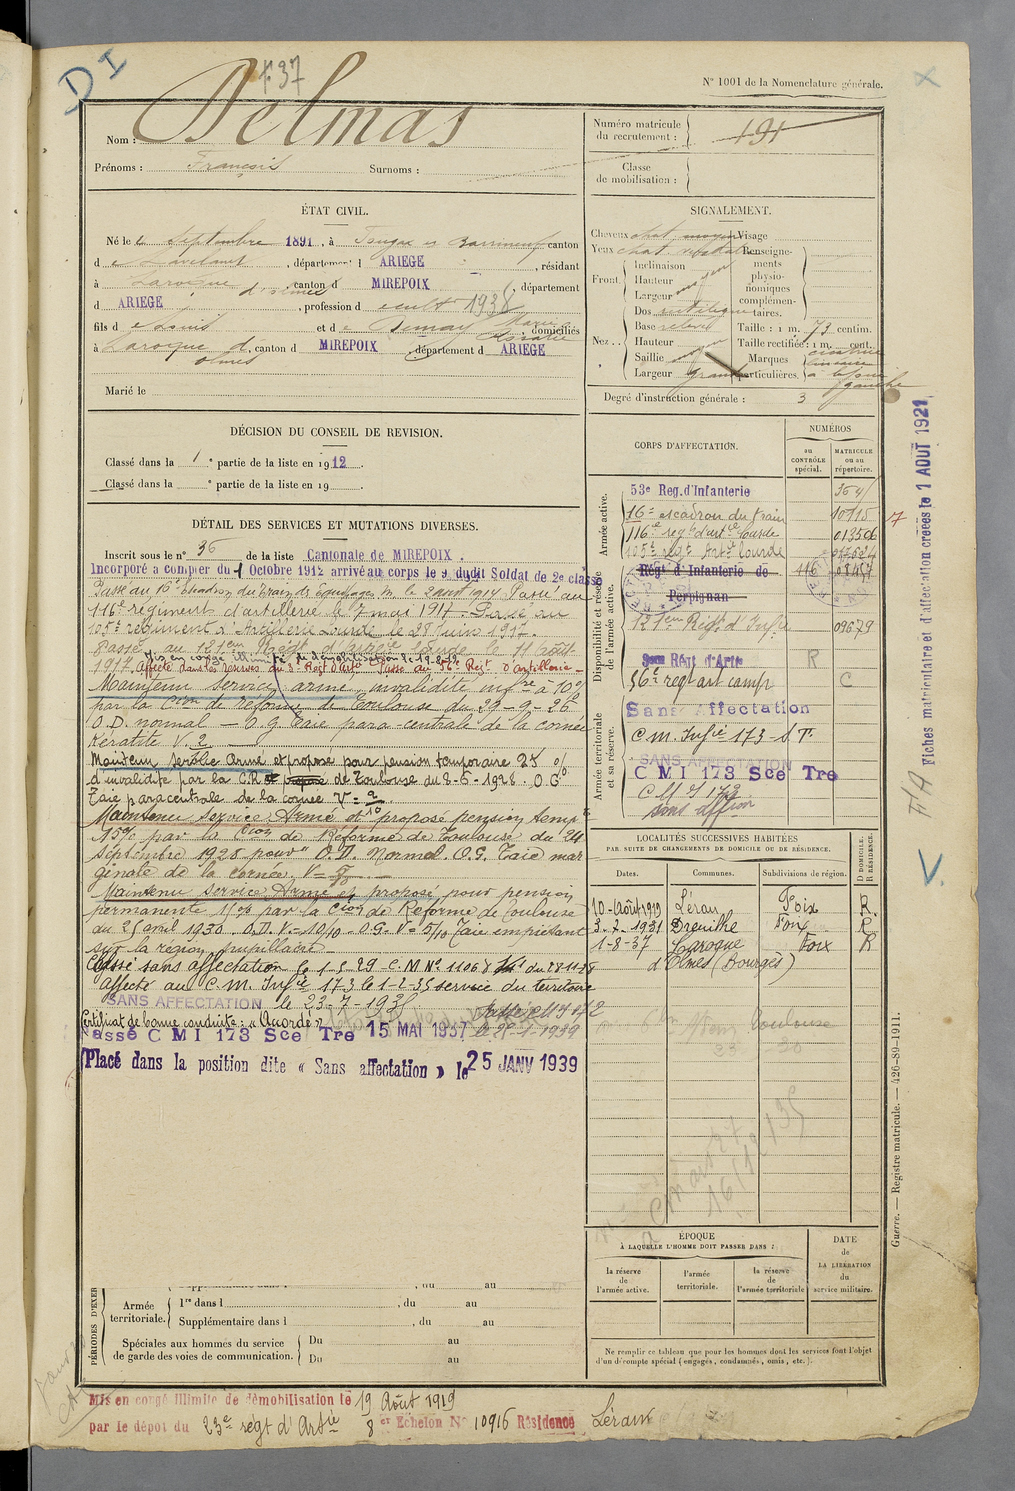 D I
1.37
N° 1001 de la Nomenclature générale.
Nom : Delmas
Prénoms : François Surnoms :
Numéro matricule du recrutement : 191
Classe de mobilisation :
ÉTAT CIVIL.
Né le 2 Septembre 1891, à canton
d e Lavelanet, département d ARIEGE, résidant
à Laroque d'olmes canton d MIREPOIX, département
d ARIEGE, profession d e cult 1938
fils d e Louis et d e Marie Rosalie, domiciliés
à Laroque d'olmes, canton d MIREPOIX, département d ARIEGE
Marié le
SIGNALEMENT.
Cheveux chat. moyen Visage
Yeux chat. Renseigne-
ments
physio-
nomiques
complémen-
taires.
Front. Inclinaison
Hauteur moyen
Largeur
Nez.. Dos rectiligne
Base relevé
Hauteur
Saillie moyen
Largeur grand
Taille : 1 m. 73 centim.
Taille rectifiée : 1 m. cent.
Marques particulières. cicatrice linéaire à gauche
Degré d'instruction générale : 3
DÉCISION DU CONSEIL DE REVISION.
Classé dans la 1e partie de la liste en 1912.
Classé dans la e partie de la liste en 19 .
DÉTAIL DES SERVICES ET MUTATIONS DIVERSES.
Inscrit sous le n° 36 de la liste Cantonale de MIREPOIX.
Incorporé à compter du 1 Octobre 1912 arrivé au corps le 9 dudit Soldat de 2e classe
Passé au 16e Escadron du train des Equipages M. le 2 août 1914 Passé au
116e régiment d'artillerie le 7 mai 1917 - Passé au
105e régiment d'Artillerie Lourde le 28 Juin 1917.
Passé au 121em Regt d'Artillerie lourde le 11 Août
1917
Mis en congé illimité de démobilisation le 19-8-19
Affecté dans les réserves du 3e Regt d'Artie Passé au 56e Regt d'Artillerie -
Maintenu service armé, invalidité infre à 10%
par la Cion de réforme de Toulouse du 23-9-26
O.D. normal - O.G. Taie para-centrale de la cornée
Kératite V. 2
Maintenu service armé et proposé pour pension temporaire 25 %
d'invalidité par la C.R. de Toulouse du 8-6-1928. O.G.
Taie paracentrale de la cornée V = 2/10.
Maintenu service Armé et proposé pension temp.
15% par la Cion de Réforme de Toulouse du 24
Septembre 1928 pour O.D. Normal. O.G. Taie mar
ginale de la cornée, V =
Maintenu service Armé et proposé pour pension
permanente par la Cion de Réforme de Toulouse
du 25 avril 1930. O.D. V = 10/10 - O.G. V = 5/10 Taie empiétant
sur la région pupillaire
Classé sans affectation le 1-5-29 C.M N° 11068 du 28-11-28
Affecté au C.M. Infie 173 le 1-2-35 service du territoire
SANS AFFECTATION le 23-7-1936
Certificat de bonne conduite : "Accordé"
Passé C M I 173 Sce Tre 15 MAI 1937
Placé dans la position dite « Sans affectation » le 25 JANV 1939
CORPS D'AFFECTATION.
NUMÉROS
au CONTRÔLE spécial.
MATRICULE ou au répertoire.
Armée active.
53e Reg. d'Infanterie
16e escadron du train 10115
116e regt d'art lourde 013506
105e regt Artie lourde
Disponibilité et réserve de l'armée active.
Régt d'Infanterie de 116
Perpignan
121em Regt d' 09679
3me Régt d'Artie R
56e regt art camp C
Armée territoriale et sa réserve.
Sans Affectation
C.M. Infie 173 - S.T.
SANS AFFECTATION
C M I 173 Sce Tre
C M I 173
sans affion
LOCALITÉS SUCCESSIVES HABITÉES
PAR SUITE DE CHANGEMENTS DE DOMICILE OU DE RÉSIDENCE.
Dates. Communes. Subdivisions de région. D DOMICILE. R RÉSIDENCE.
10-Août 1919 Léran Foix R
3-2-1931 Dreuilhe Foix R
1-8-37 Laroque Foix R
d'Olmes (Bourges)
Toulouse
ÉPOQUE
À LAQUELLE L'HOMME DOIT PASSER DANS :
la réserve de l'armée active.
l'armée territoriale.
la réserve de l'armée territoriale
DATE de LA LIBÉRATION du service militaire.
Ne remplir ce tableau que pour les hommes dont les services font l'objet
d'un décompte spécial (engagés, condamnés, omis, etc.).
PÉRIODES D'EXER
Supplémentaire dans l , du au
Armée territoriale. 1re dans l , du au
Supplémentaire dans l , du au
Spéciales aux hommes du service
de garde des voies de communication.
Du au
Du au
Mis en congé illimité de démobilisation le 19 Août 1919
par le dépôt du 23e régt d'Artie 8 er Echelon N° 10916 Résidence Léran
Fiches matriculaire et d'affectation créées le 1 AOUT 1921
F/A
V.
Guerre. — Registre matricule. — 426-89-1911.